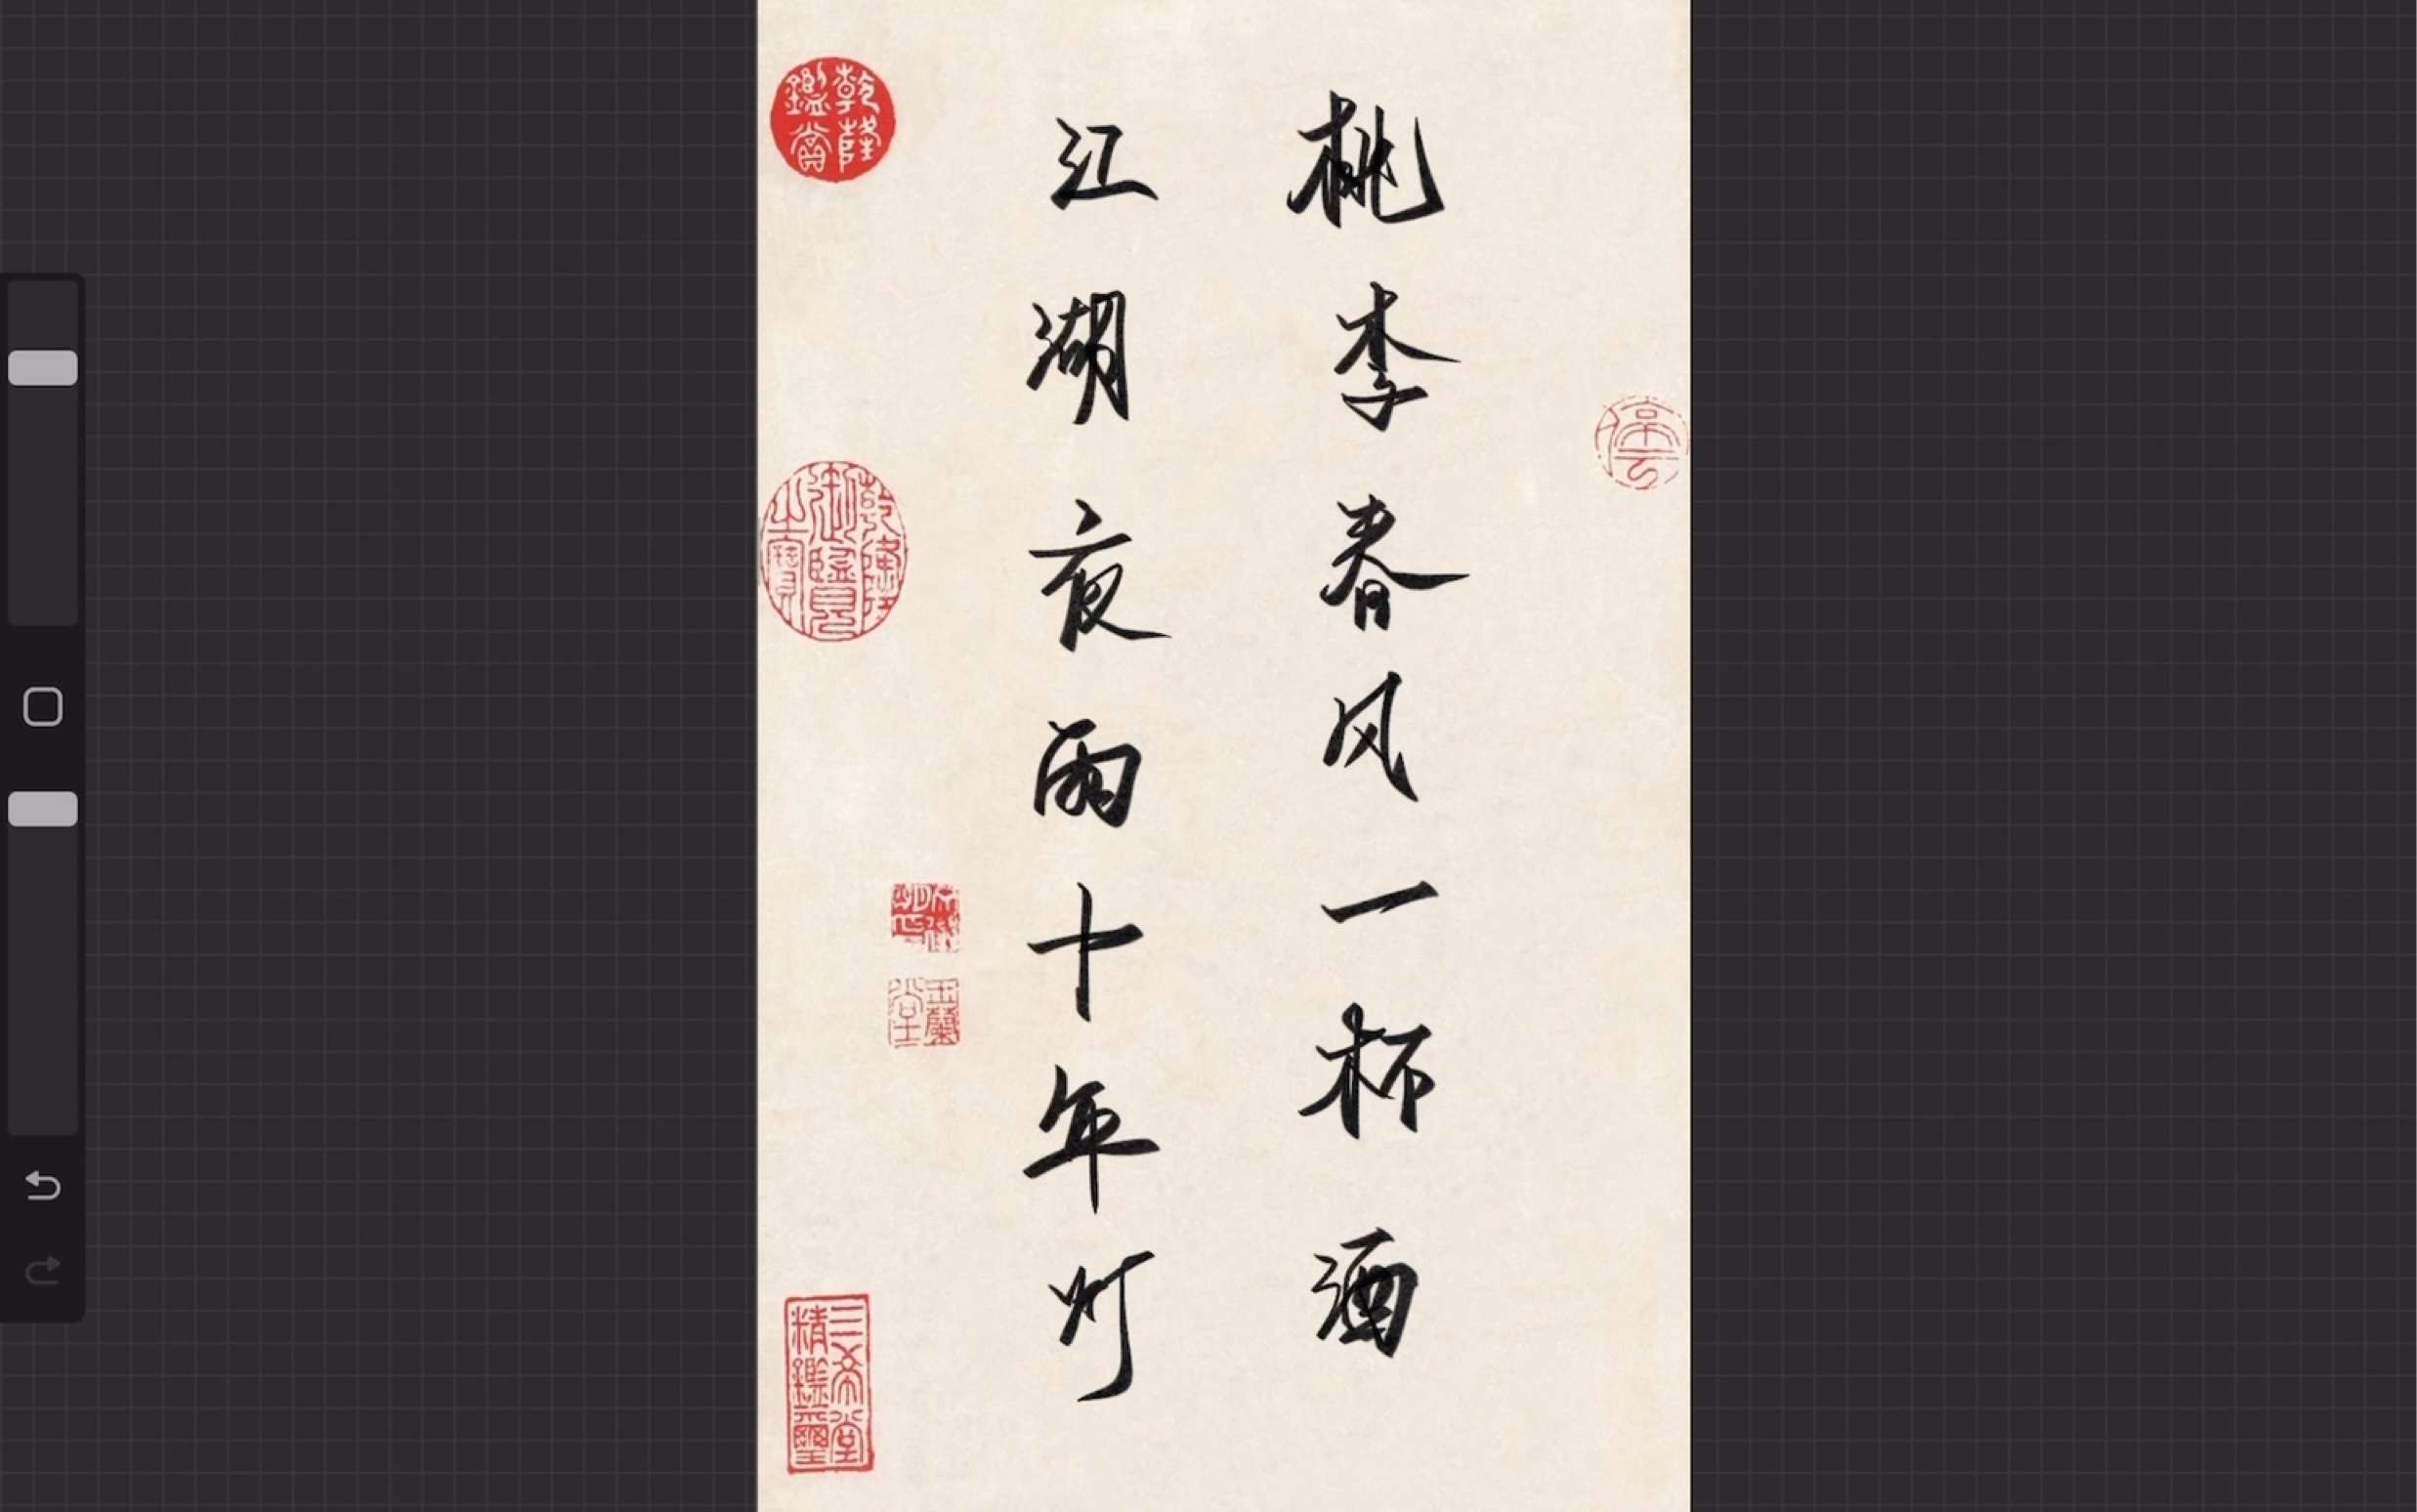 桃李春风一杯酒
江湖夜雨十年灯
乾隆鑑賞
乾隆御覽之寶
玉蘭堂
三希堂精鑑璽
停雲